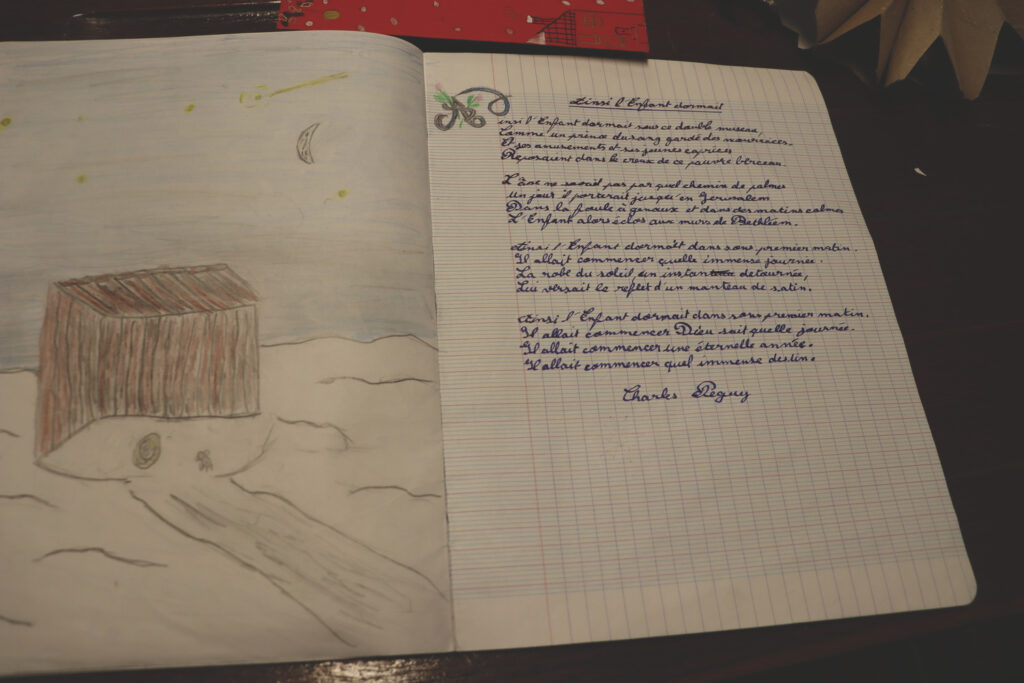 Ainsi l'Enfant dormait
Ainsi l'Enfant dormait sous ce double museau,
Comme un prince du sang gardé des nourrices.
Et ses amusements et ses jeunes caprices
Reposaient dans le creux de ce pauvre berceau.
L'âne ne savait pas par quel chemin de palmes
Un jour il porterait jusqu'en Jerusalem
Dans la foule à genoux et dans des matins calmes
L'Enfant alors éclos aux murs de Bethléem.
Ainsi l'Enfant dormait dans sons premier matin.
Il allait commencer quelle immense journée.
La robe du soleil, un instant detournée,
Lui versait le reflet d'un manteau de satin.
Ainsi l'Enfant dormait dans sons premier matin.
Il allait commencer Dieu sait quelle journée.
Il allait commencer une éternelle année.
Il allait commencer quel immense destin.
Charles Péguy